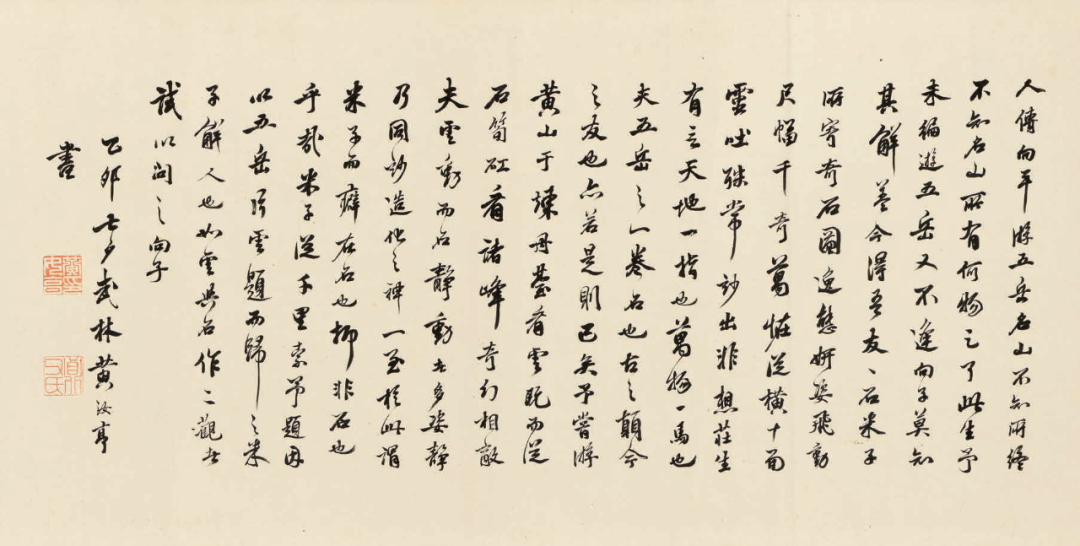 人傳向平游五岳名山不知所終
不知名山所有何物之了此生予
未徧遊五岳又不逢向子莫知
其解蓋今得吾友友石米子
所寄奇石圖逸態妍姿飛動
尺幅千奇萬怪從横十面
靈吐殊常妙出非想莊生
有言天地一指也萬物一馬也
夫五岳之一卷石也古之顛今
之友也亦若是則已矣予嘗游
黄山于煉丹臺看雲既而從
石筍矼看諸峰奇幻相敵
夫雲動而石靜動者多姿靜
乃同妙造化之神一至於此謂
米子而癖在石也抑非石也
乎哉米子從千里索予題因
以五岳殍雲題而歸之米
子解人也如雲與石作二觀者
試以問之向子
乙卯七夕武林黄汝亨
書